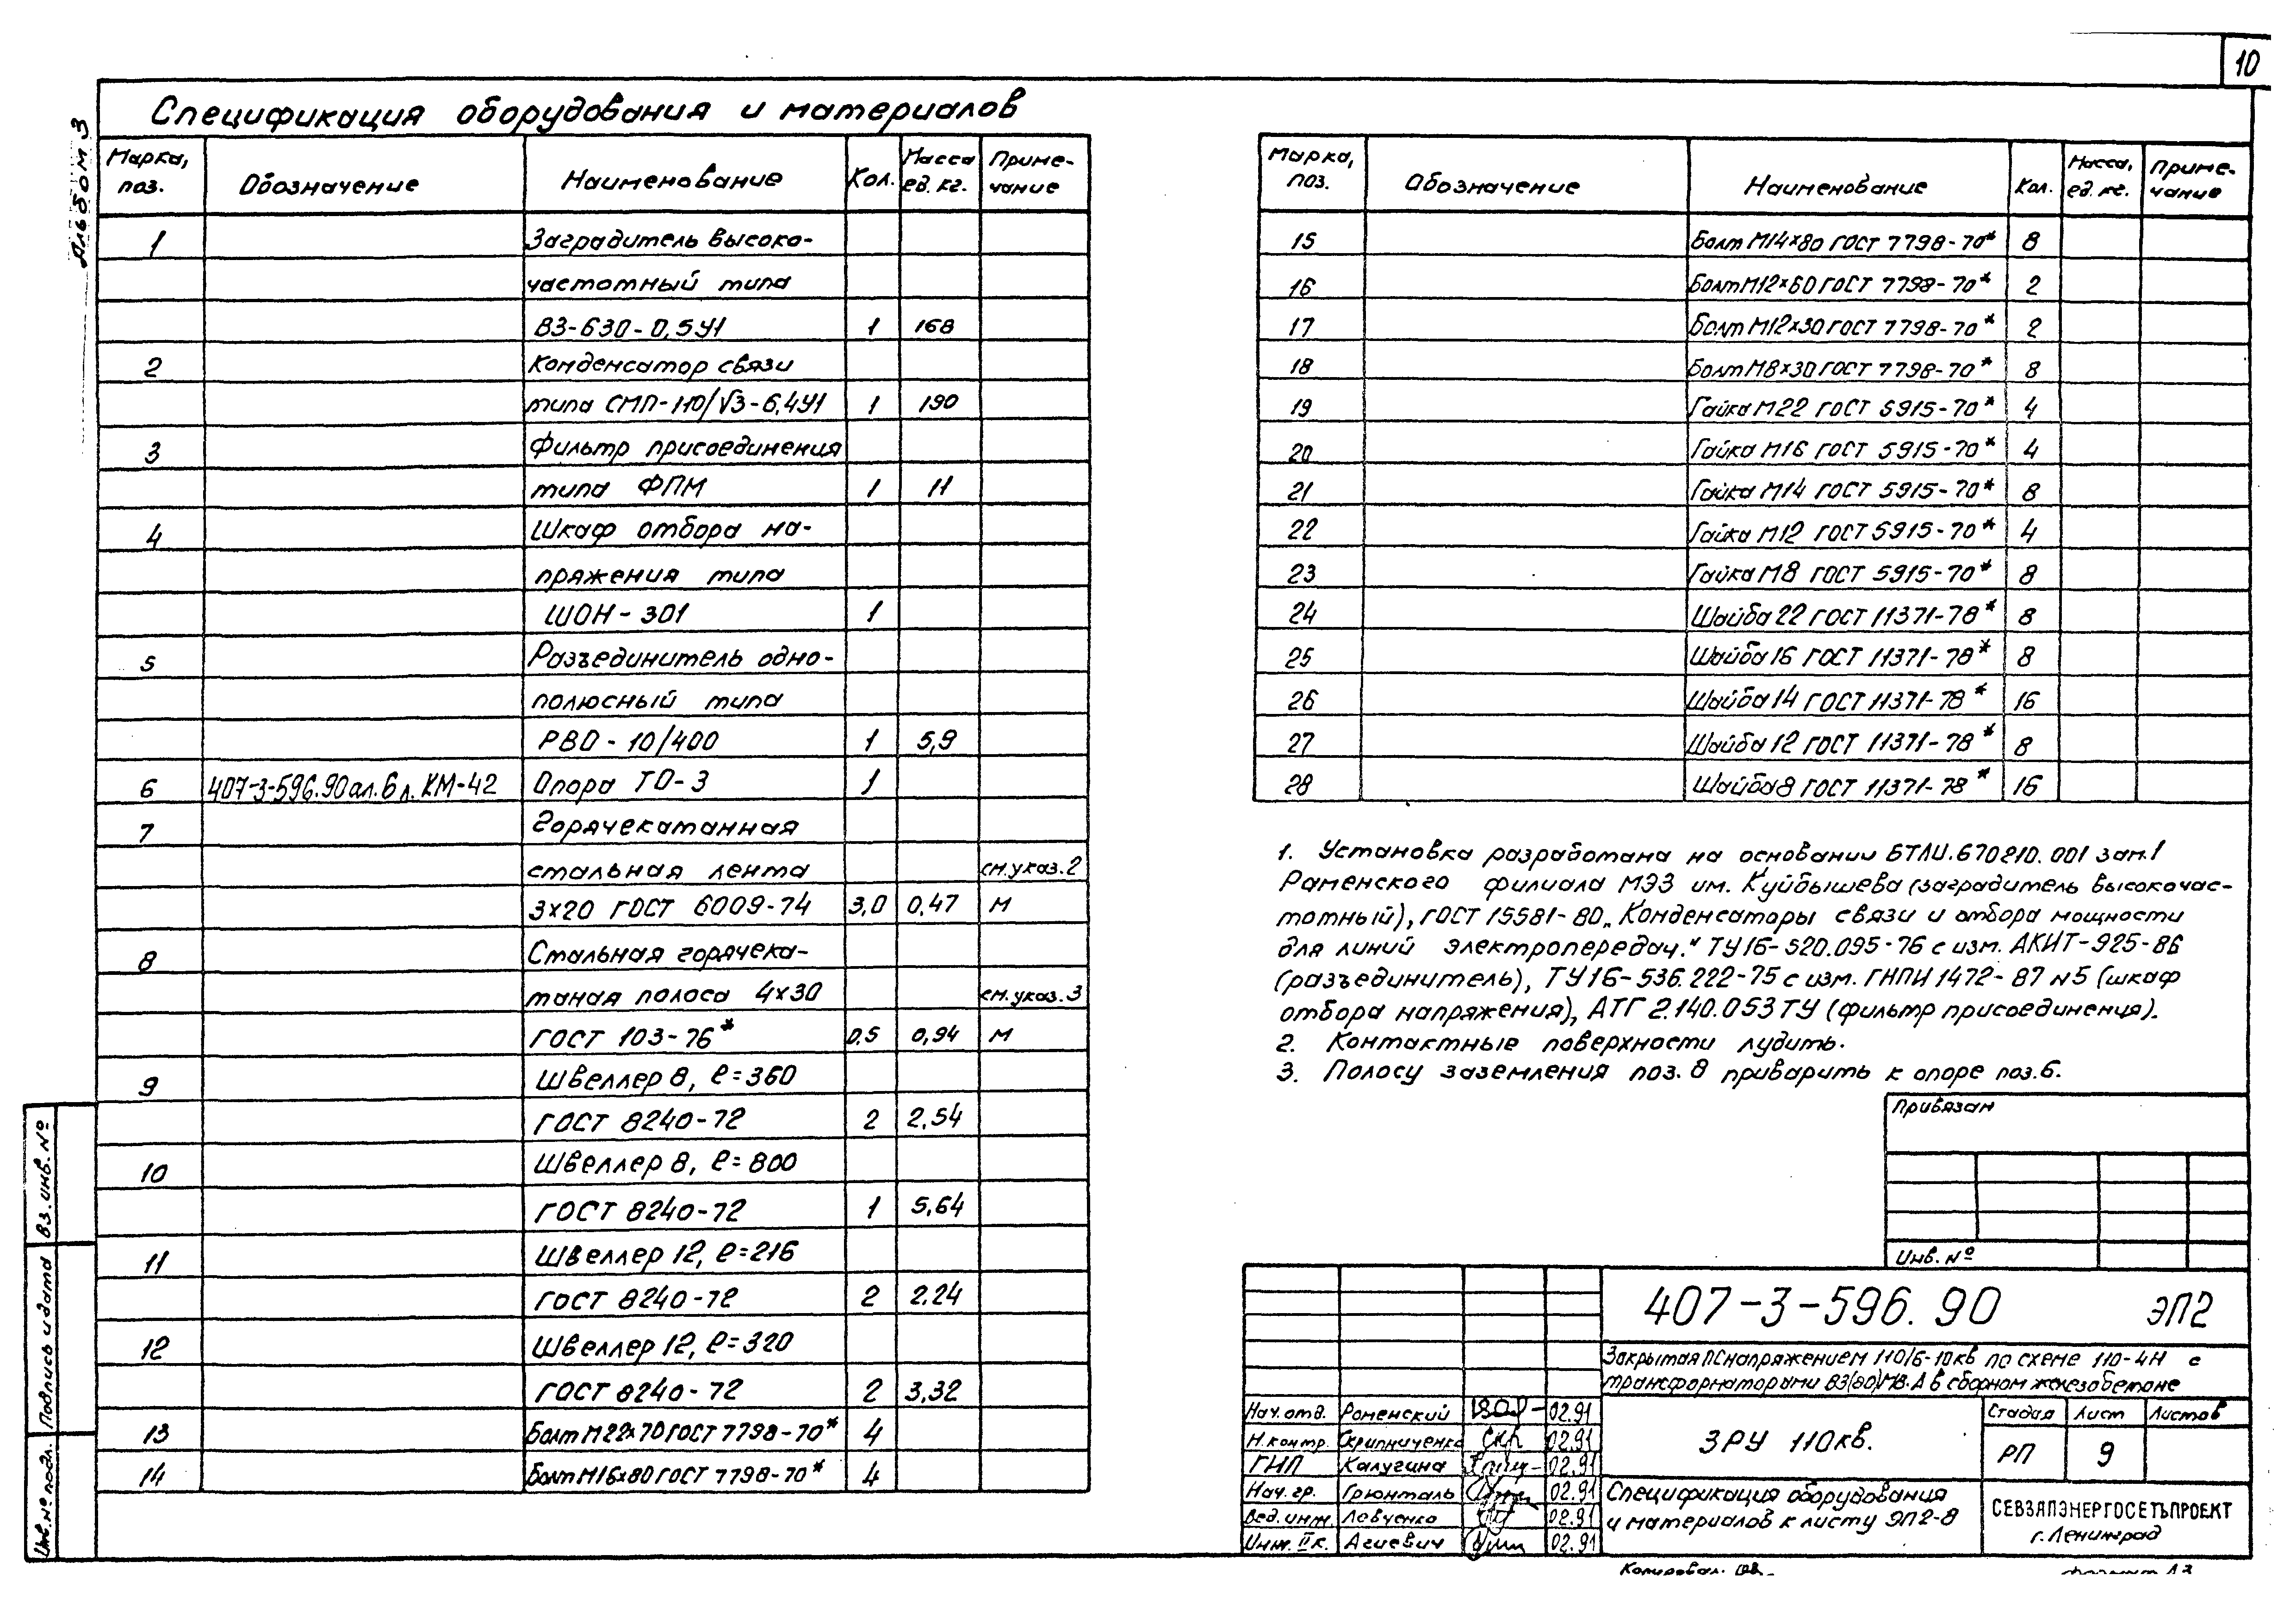 10
Альбом 3
Спецификация оборудования и материалов
Марка, поз. Обозначение Наименование Кол. Масса ед. кг. Приме-чание
1 Заградитель высоко-
частотный типа
ВЗ-630-0,5У1 1 168
2 Конденсатор связи
типа СМП-110/√3-6,4У1 1 190
3 Фильтр присоединения
типа ФПМ 1 11
4 Шкаф отбора на-
пряжения типа
ШОН-301 1
5 Разъединитель одно-
полюсный типа
РВО-10/400 1 5,9
6 407-3-596.90 ал.6 л. КМ-42 Опора ТО-3 1
7 Горячекатанная
стальная лента см.указ.2
3×20 ГОСТ 6009-74 3,0 0,47 м
8 Стальная горячека-
таная полоса 4×30 см.указ.3
ГОСТ 103-76* 0,5 0,94 м
9 Швеллер 8, ℓ=360
ГОСТ 8240-72 2 2,54
10 Швеллер 8, ℓ=800
ГОСТ 8240-72 1 5,64
11 Швеллер 12, ℓ=216
ГОСТ 8240-72 2 2.24
12 Швеллер 12, ℓ=320
ГОСТ 8240-72 2 3,32
13 Болт М22×70 ГОСТ 7798-70* 4
14 Болт М16×80 ГОСТ 7798-70* 4
Марка, поз. Обозначение Наименование Кол. Масса, ед. кг. Приме-чание
15 Болт М14×80 ГОСТ 7798-70* 8
16 Болт М12×60 ГОСТ 7798-70* 2
17 Болт М12×30 ГОСТ 7798-70* 2
18 Болт М8×30 ГОСТ 7798-70* 8
19 Гайка М22 ГОСТ 5915-70* 4
20 Гайка М16 ГОСТ 5915-70* 4
21 Гайка М14 ГОСТ 5915-70* 8
22 Гайка М12 ГОСТ 5915-70* 4
23 Гайка М8 ГОСТ 5915-70* 8
24 Шайба 22 ГОСТ 11371-78* 8
25 Шайба 16 ГОСТ 11371-78* 8
26 Шайба 14 ГОСТ 11371-78* 16
27 Шайба 12 ГОСТ 11371-78* 8
28 Шайба 8 ГОСТ 11371-78* 16
1. Установка разработана на основании БТЛИ.670210.001 зам.1
Раменского филиала МЭЗ им. Куйбышева (заградитель высокочас-
тотный), ГОСТ 15581-80 „Конденсаторы связи и отбора мощности
для линий электропередач." ТУ16-520.095-76 с изм. АКИТ-925-86
(разъединитель), ТУ16-536.222-75 с изм. ГНПИ 1472-87 №5 (шкаф
отбора напряжения), АТГ 2.140.053 ТУ (фильтр присоединения).
2. Контактные поверхности лудить.
3. Полосу заземления поз. 8 приварить к опоре поз.6.
Привязан
Инв. №
407-3-596.90 ЭП2
Закрытая ПС напряжением 110/6-10кв по схеме 110-4Н с
трансформаторами 63(80)МВ·А в сборном железобетоне
Нач. отд. Роменский 02.91
Н. контр. Скрипниченко 02.91
ГИП Калугина 02.91
Нач. гр. Грюнталь 02.91
Вед. инж. Левченко 02.91
Инж. II к. Агиевич 02.91
ЗРУ 110кв.
Стадия Лист Листов
РП 9
Спецификация оборудования
и материалов к листу ЭП2-8
СЕВЗАПЭНЕРГОСЕТЬПРОЕКТ
г. Ленинград
Копировал.
Формат А3
Инв. № подл. Подпись и дата Вз. инв. №